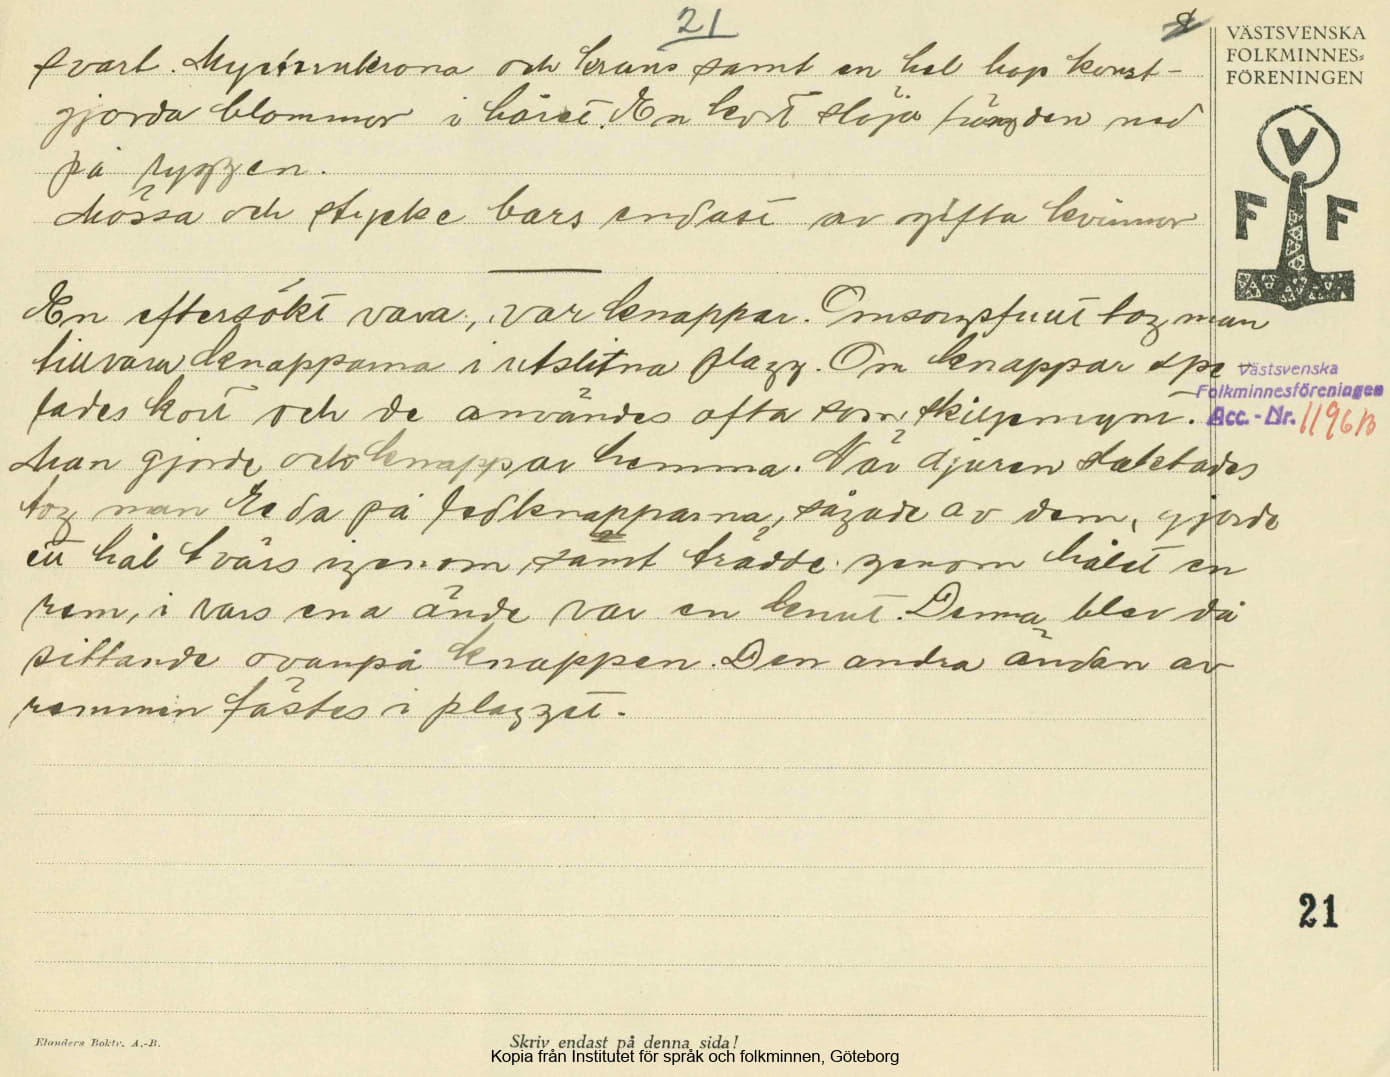 21
svart. Myrtenkrona och krans samt en hel hop konst-
gjorda blommor i håret. En kort slöja hängden ned
på ryggen.
Mössa och stycke bars endast av gifta kvinnor
En eftersökt vara, var knappar. Omsorgsfullt tog man
tillvara knapparna i utslitna plagg. Om knappar spe
lades kort och de användes ofta som skiljemynt.
Man gjorde ock knappar hemma. När djuren slaktades
tog man reda på ledknapparna, sågade av dem, gjorde
ett hål tvärs igenom samt trädde genom hålet en
rem, i vars ena ände var en knut. Denna blev då
sittande ovanpå knappen. Den andra ändan av
remmen fästes i plagget.
VÄSTSVENSKA
FOLKMINNES-
FÖRENINGEN
V
F F
Västsvenska
Folkminnesföreningen
Acc. - Nr. 1196 B
21
Elanders Boktr. A.-B.
Skriv endast på denna sida!
Kopia från Institutet för språk och folkminnen, Göteborg